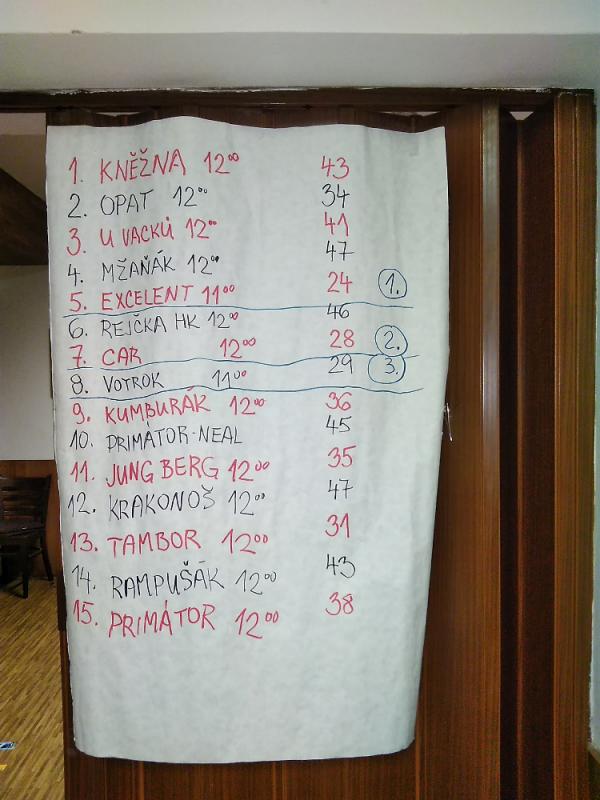 1. KNĚŽNA 12⁰⁰ 43
2. OPAT 12⁰⁰ 34
3. U VACKŮ 12⁰⁰ 41
4. MŽAŇÁK 12⁰⁰ 47
5. EXCELENT 11⁰⁰ 24 1.
6. REJČKA HK 12⁰⁰ 46
7. CAR 12⁰⁰ 28 2.
8. VOTROK 11⁰⁰ 29 3.
9. KUMBURÁK 12⁰⁰ 36
10. PRIMÁTOR-NEAL 45
11. JUNGBERG 12⁰⁰ 35
12. KRAKONOŠ 12⁰⁰ 47
13. TAMBOR 12⁰⁰ 31
14. RAMPUŠÁK 12⁰⁰ 43
15. PRIMÁTOR 12⁰⁰ 38